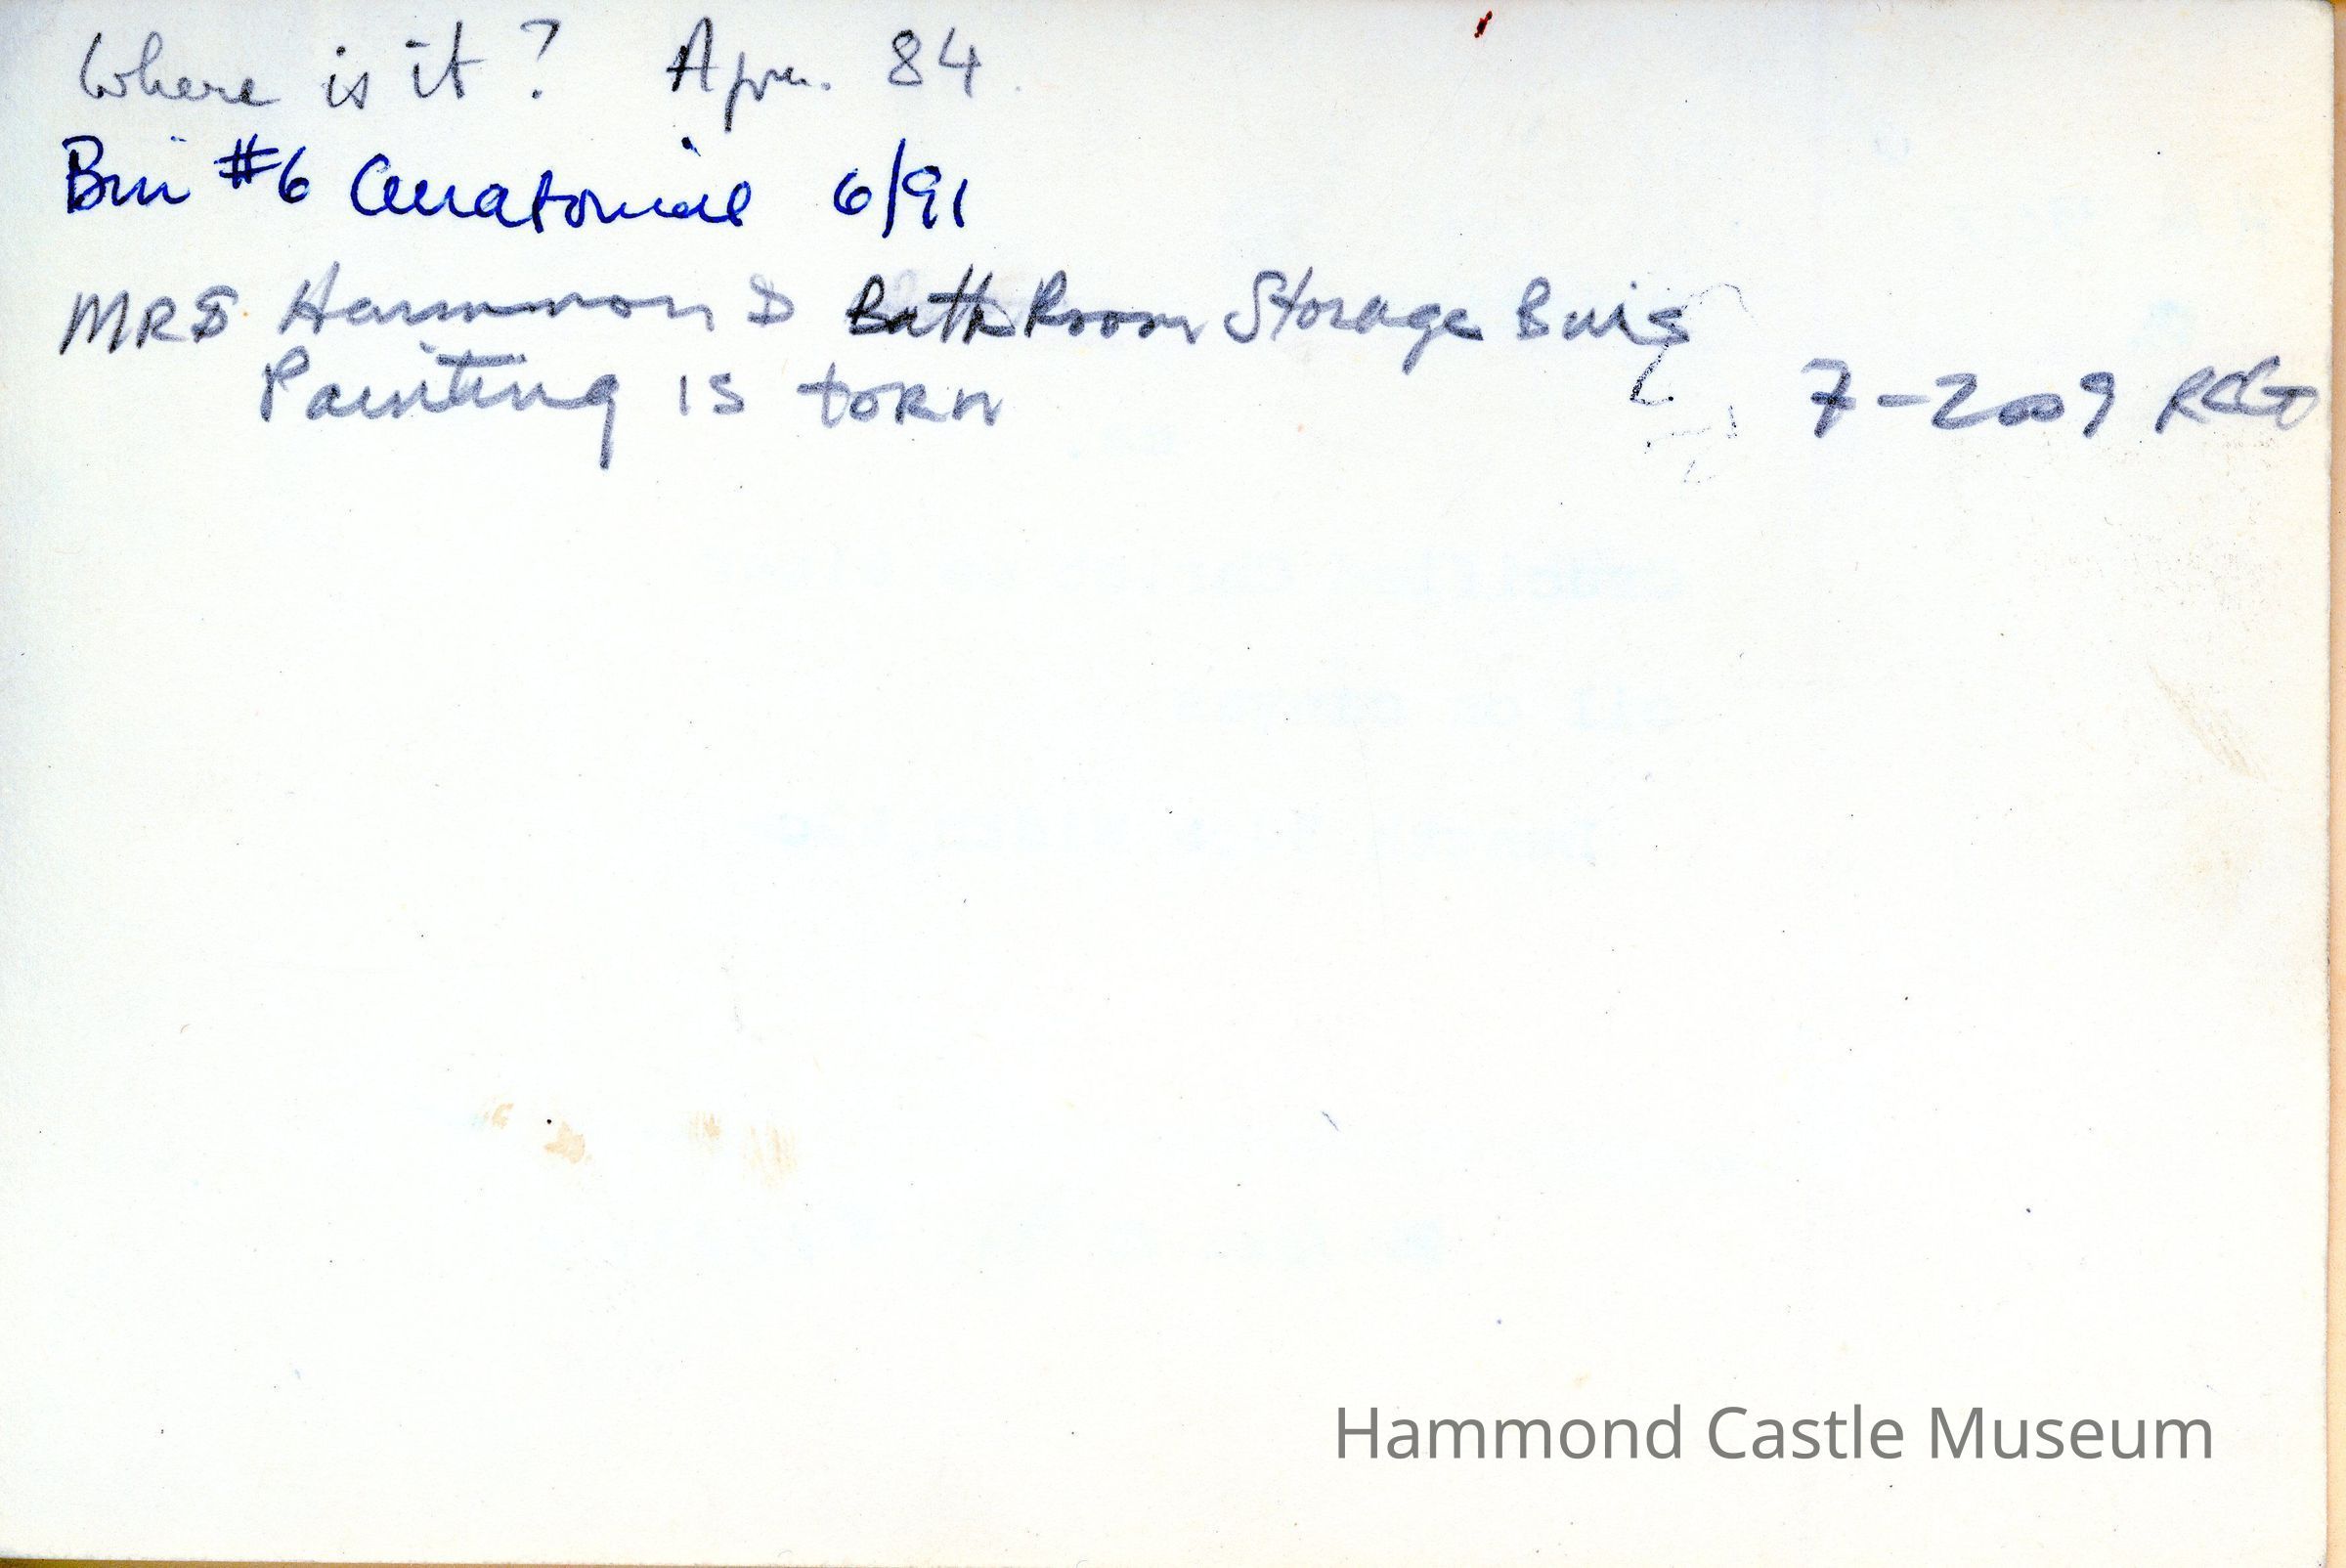 Where is it? Apr. 84
Bin #6 Curatorial 6/91
MRS Hammond Bath Room Storage Bins
Painting is torn
7-2009 RCG
Hammond Castle Museum